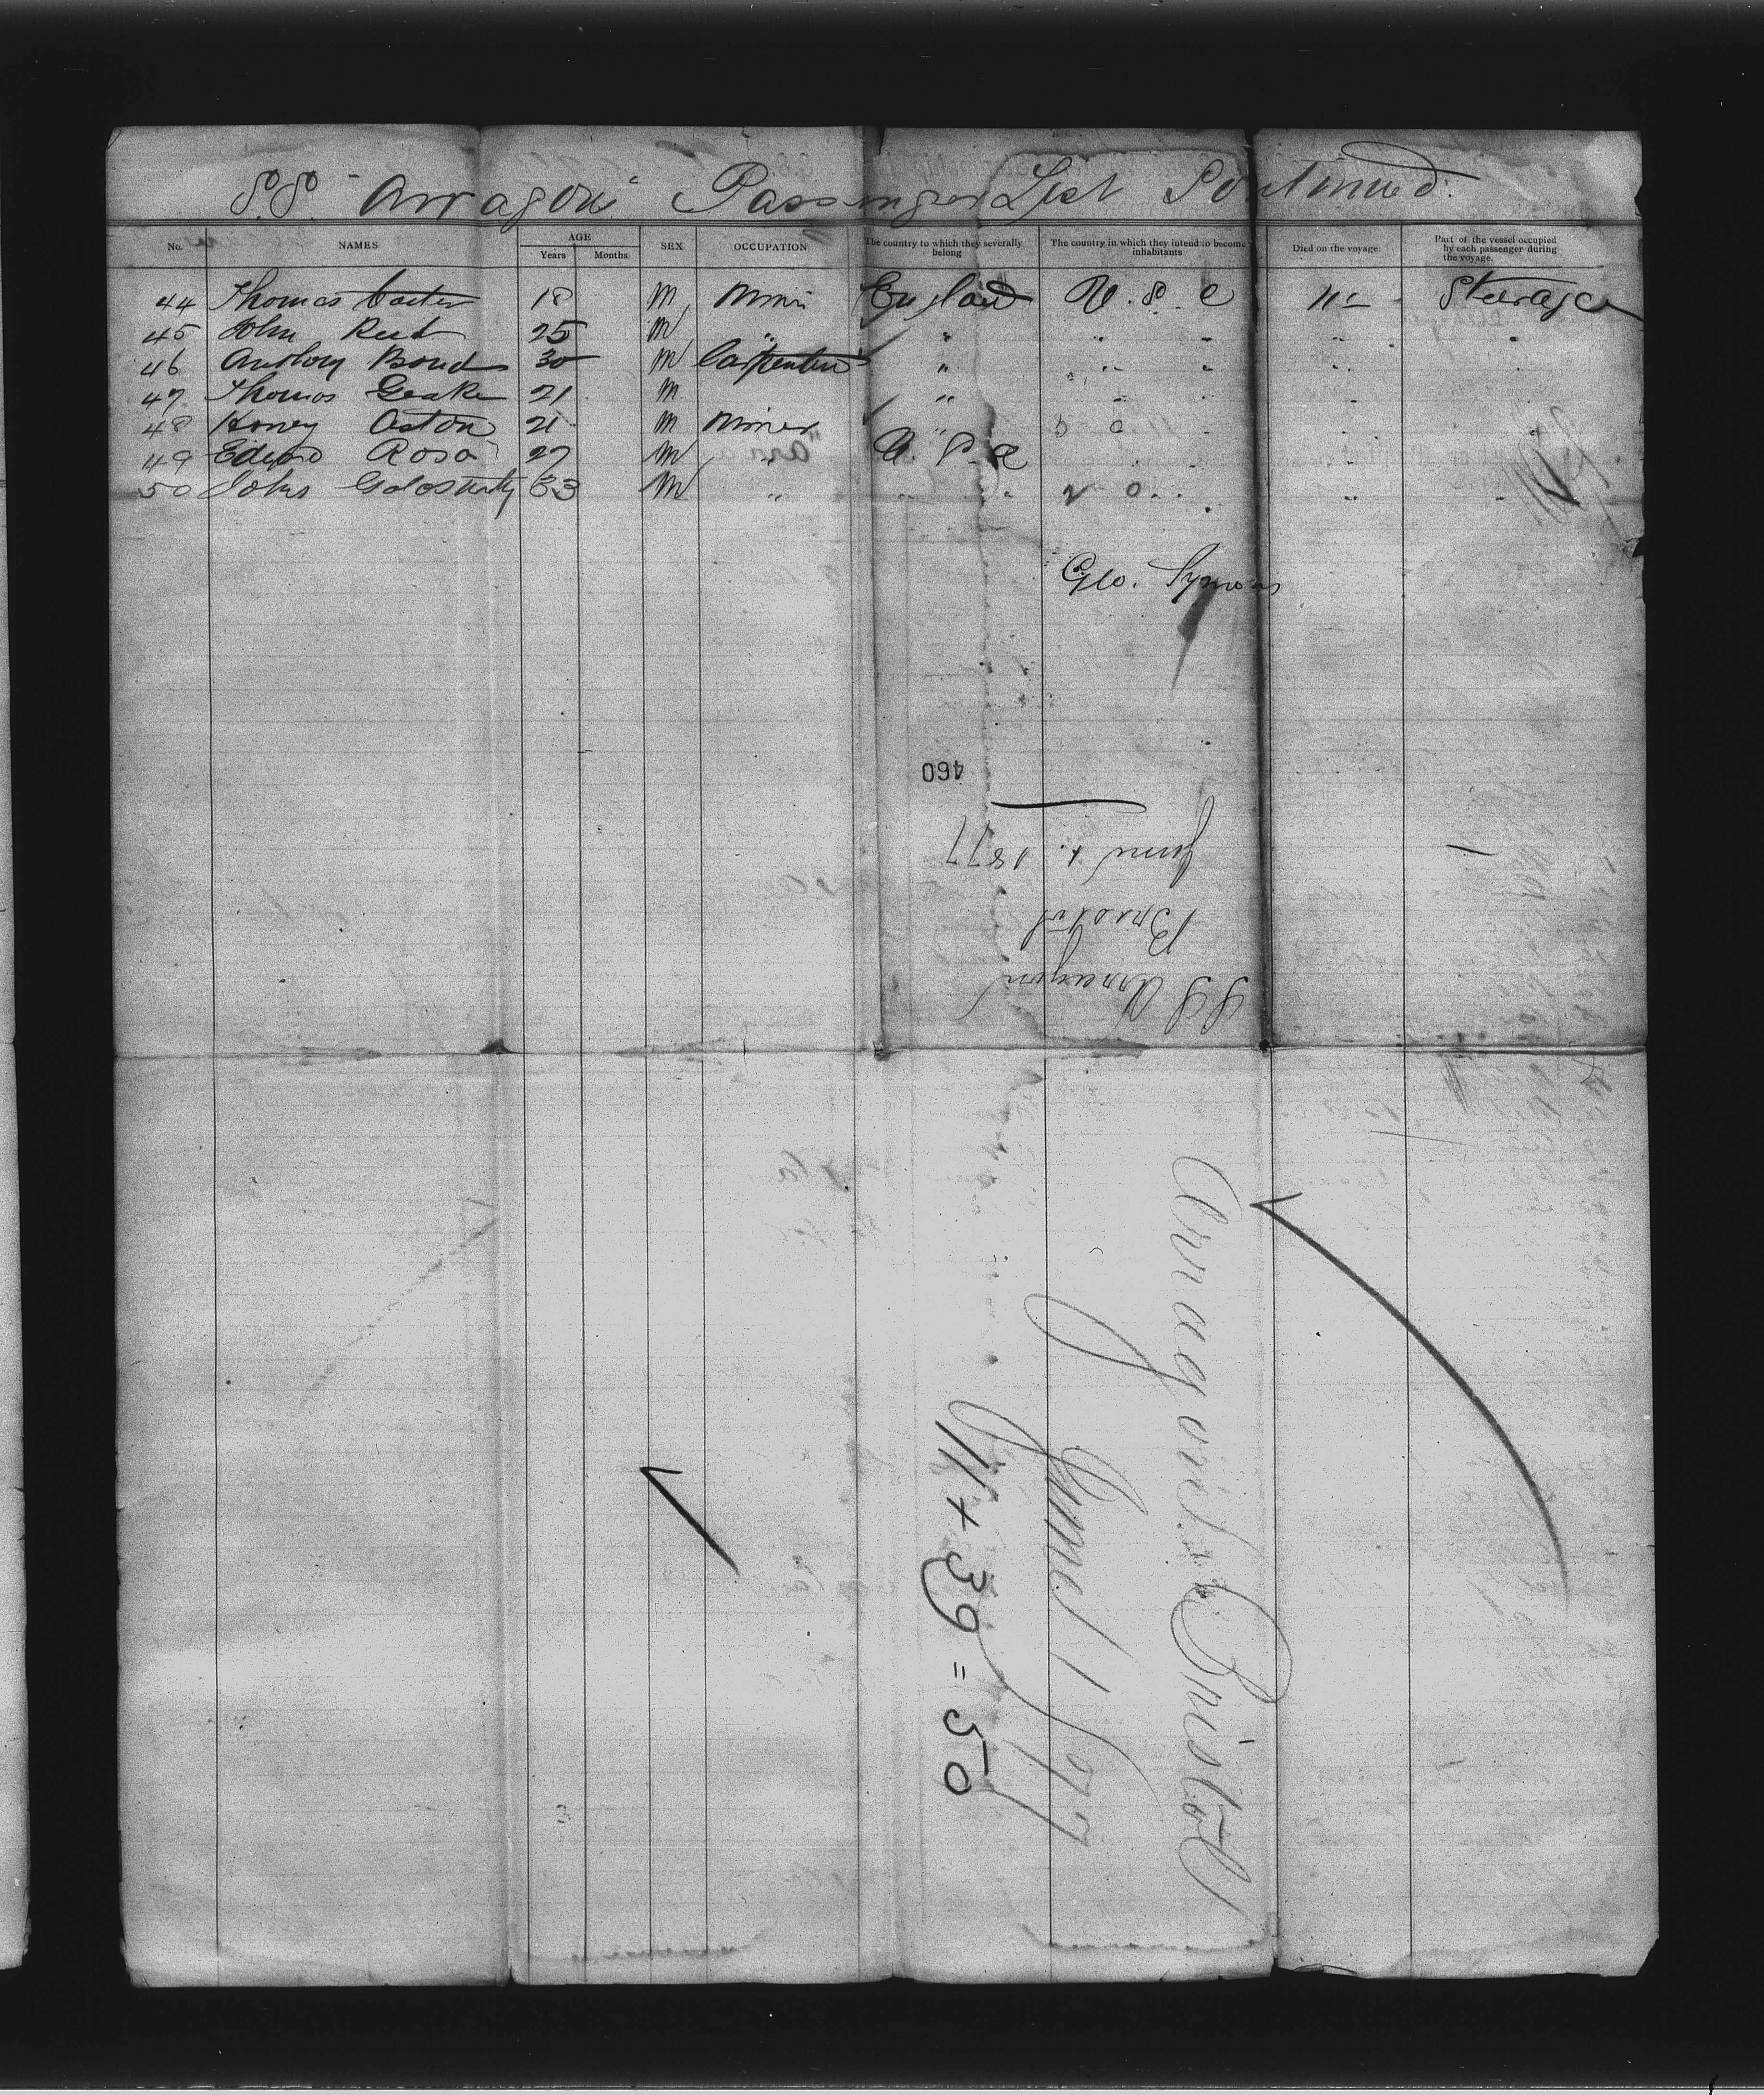 S.S. "Arragon" Passenger List Continued.
No. NAMES AGE Years Months SEX OCCUPATION The country to which they severally belong The country in which they intend to become inhabitants Died on the voyage. Part of the vessel occupied by each passenger during the voyage.
44 Thomas Carter 18 M Miner England U.S.A Steerage
45 John Reed 25 M " " " "
46 Anthony Bond 30 M Carpenter " " "
47 Thomas 21 M " "
48 Aston 21 M Miner "
49 Rosa 27 M " U.S.A
50 John M " "
Geo. Symons
460
June 1. 1877
Bristol
SS Arragon
Arragon Bristol
June 1 1877
11 + 39 = 50